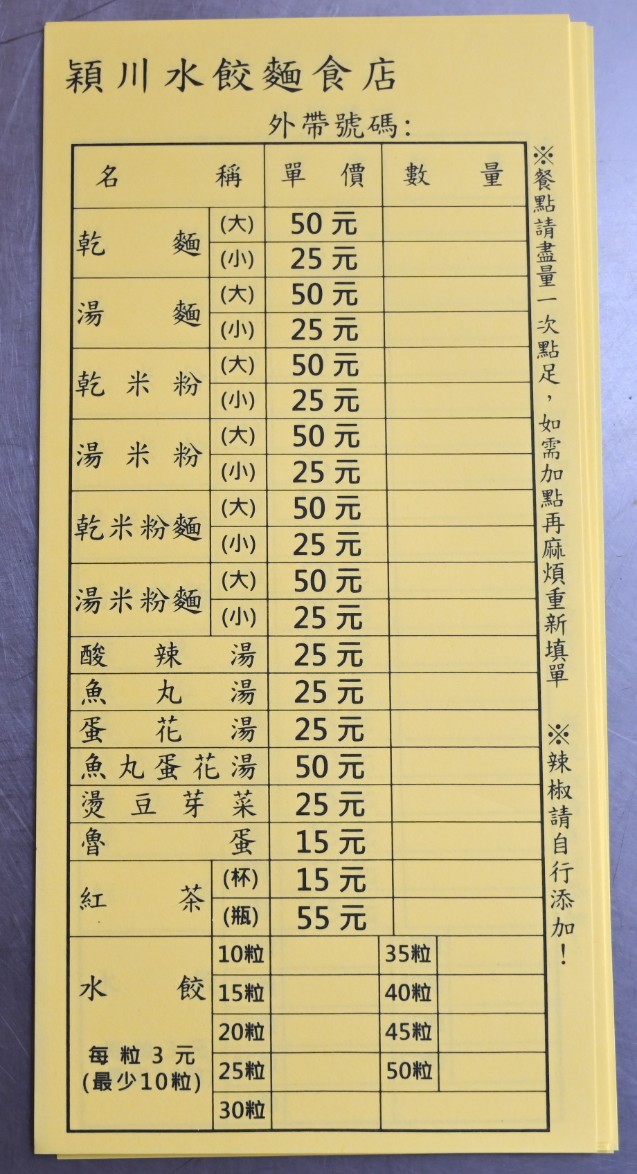 穎川水餃麵食店
外帶號碼：
名稱 單價 數量
乾麵 (大) 50元
(小) 25元
湯麵 (大) 50元
(小) 25元
乾米粉 (大) 50元
(小) 25元
湯米粉 (大) 50元
(小) 25元
乾米粉麵 (大) 50元
(小) 25元
湯米粉麵 (大) 50元
(小) 25元
酸辣湯 25元
魚丸湯 25元
蛋花湯 25元
魚丸蛋花湯 50元
燙豆芽菜 25元
魯蛋 15元
紅茶 (杯) 15元
(瓶) 55元
水餃
每粒3元
(最少10粒)
10粒 35粒
15粒 40粒
20粒 45粒
25粒 50粒
30粒
※餐點請盡量一次點足，如需加點再麻煩重新填單
※辣椒請自行添加！